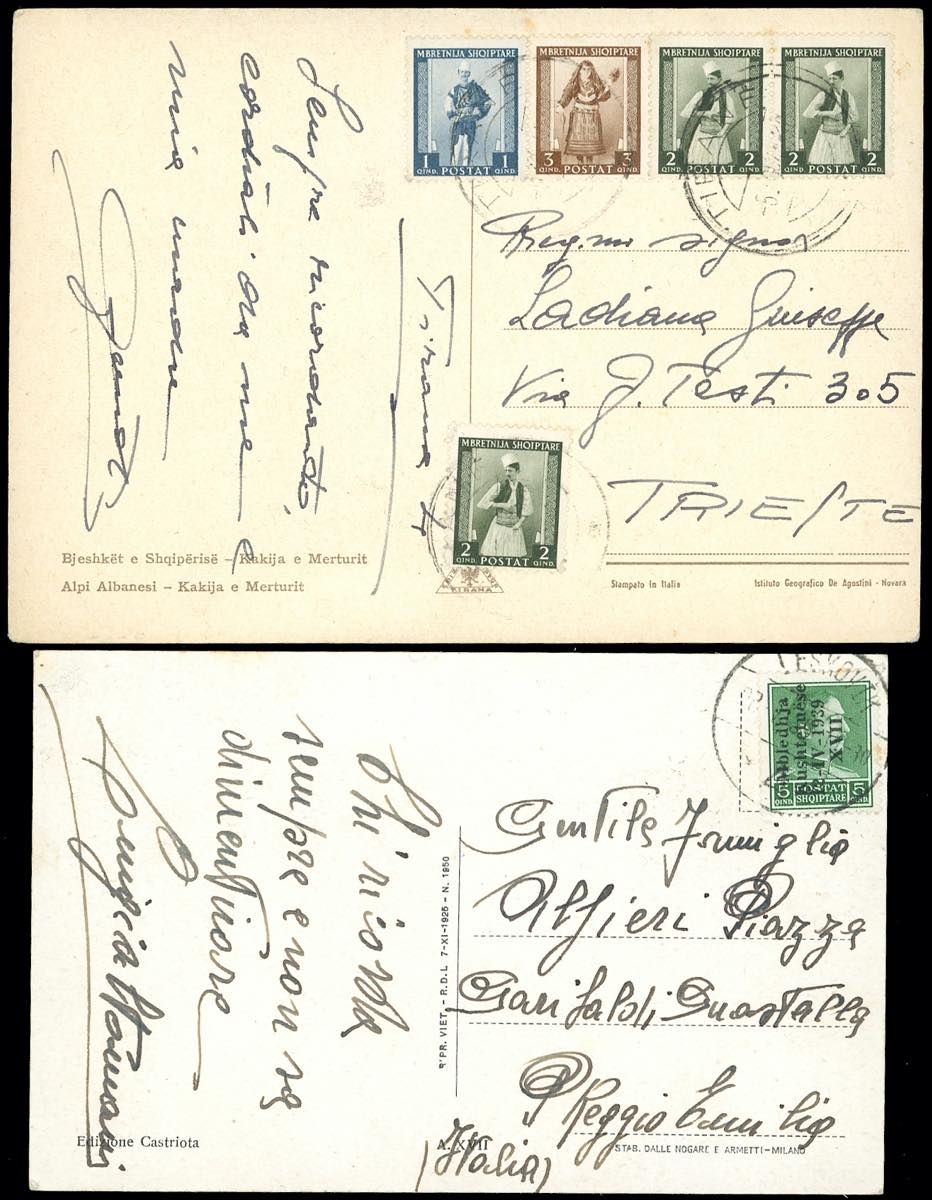 MBRETNIJA SHQIPTARE
1 QIND. POSTAT 1 QIND.
MBRETNIJA SHQIPTARE
3 QIND. POSTAT 3 QIND.
MBRETNIJA SHQIPTARE
2 QIND. POSTAT 2 QIND.
MBRETNIJA SHQIPTARE
2 QIND. POSTAT 2 QIND.
TIRANA
Sempre ricordando
cordiali da me e
mia madre
Tirana
Preg.mo signor
Ladiana Giuseppe
Via G. Testi 305
TRIESTE
MBRETNIJA SHQIPTARE
2 QIND. POSTAT 2 QIND.
TIRANA
Bjeshkët e Shqipërisë – Kakija e Merturit
Alpi Albanesi – Kakija e Merturit
Stampato in Italia
Istituto Geografico De Agostini - Novara
LESKOVIK
Mbledhja
Kushtetuëse
12-IV-1939
XVII
5 QIND. POSTAT SHQIPTARE 5 QIND.
Chi riorda
sempre e non sa
dimenticare
Gentile Famiglia
Alfieri Piazza
Garibaldi Guastalla
P Reggio Emilia
(Italia)
R.D.L. 7-XI-1925 - N. 1950
Edizione Castriota
A. XVII
STAB. DALLE NOGARE E ARMETTI-MILANO